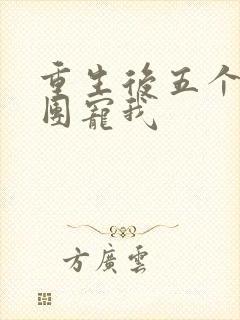 重生後五个
團寵我
方廣雲